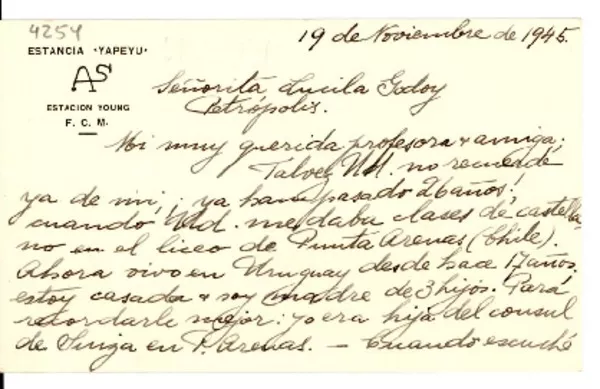 4254
ESTANCIA "YAPEYU"
AS
ESTACION YOUNG
F. C. M.
19 de Noviembre de 1945.
Señorita Lucila Godoy
Petrópolis.
Mi muy querida profesora & amiga:
Talvez Ud. no recuerde
ya de mi, ya han pasado 26 años!
cuando Ud. me daba clases de castella-
no en el liceo de Punta Arenas (Chile).
Ahora vivo en Uruguay desde hace 17 años,
estoy casada & soy madre de 3 hijos. Para
recordarle mejor: yo era hija del consul
de Suiza en P. Arenas. — Cuando escuché